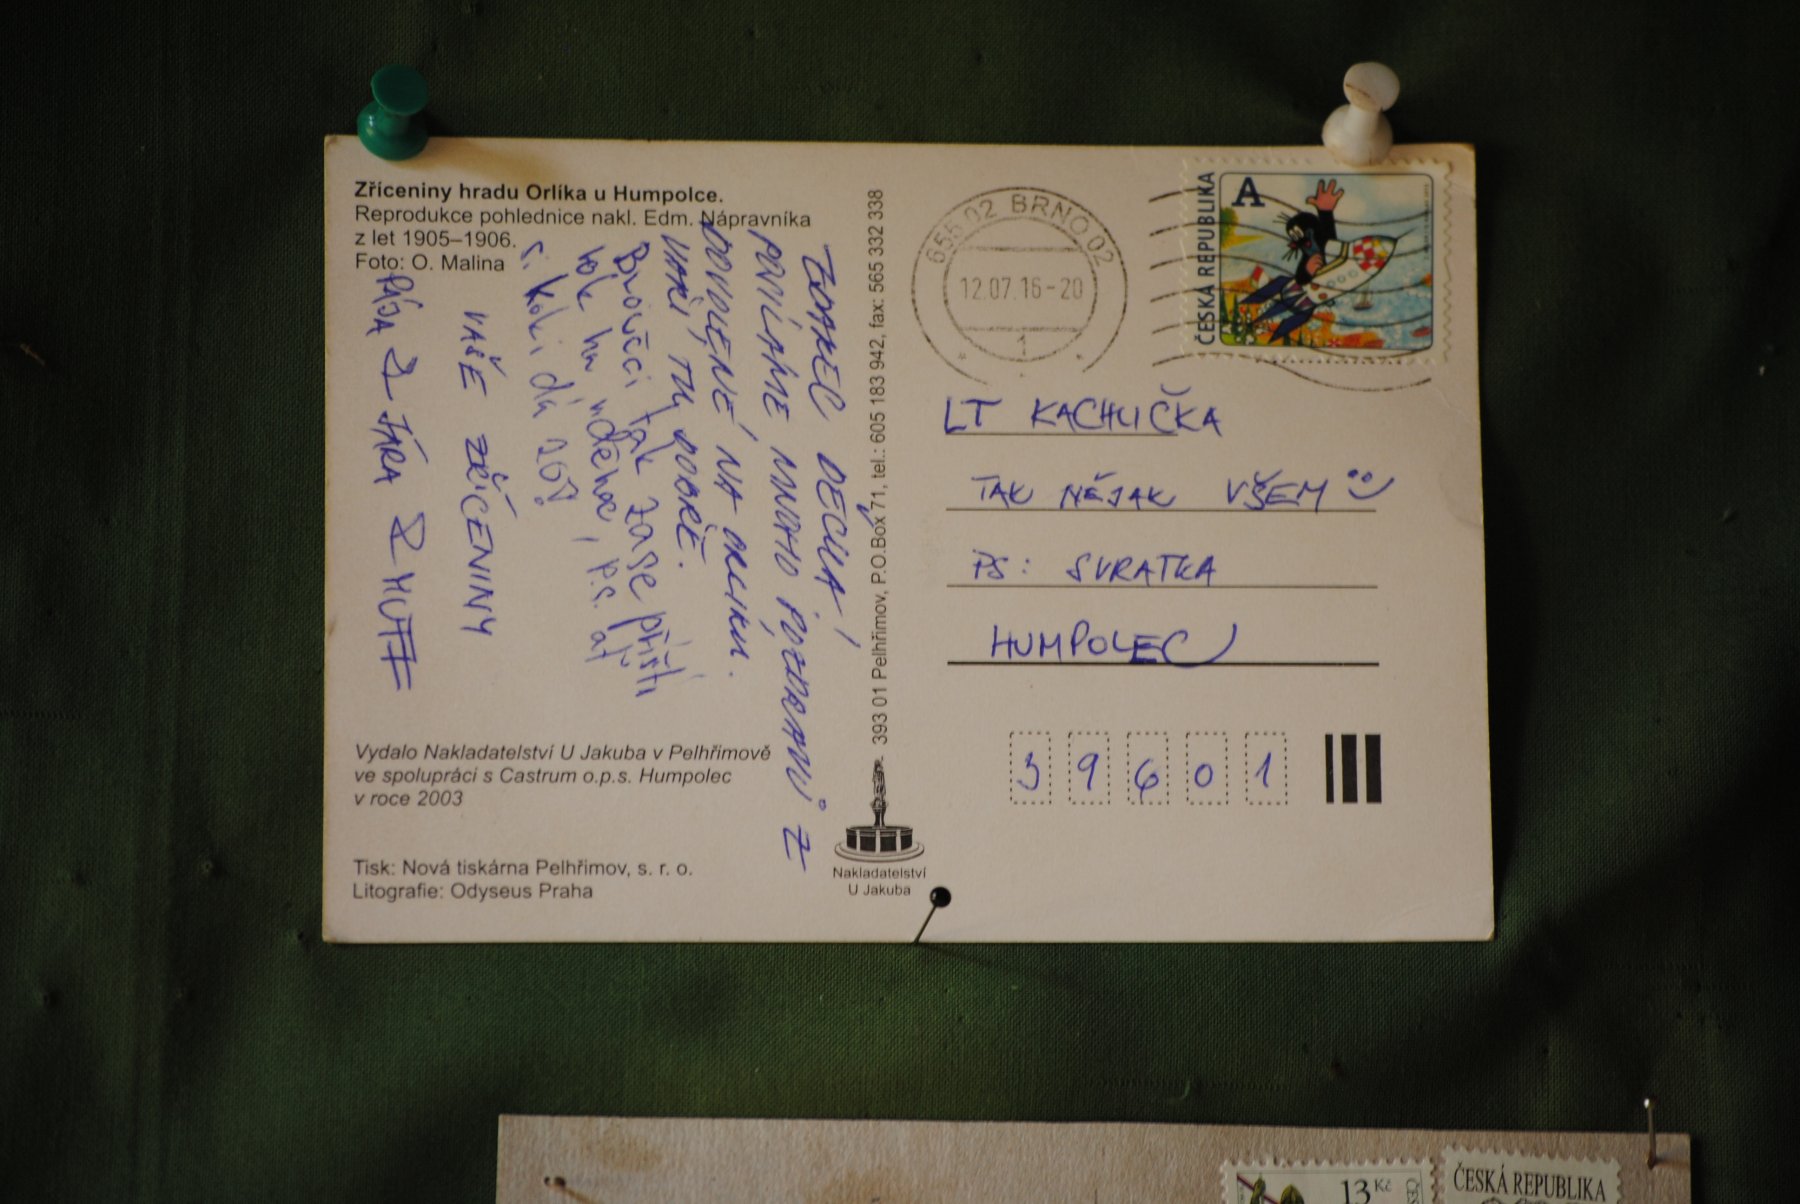 Zříceniny hradu Orlíka u Humpolce.
Reprodukce pohlednice nakl. Edm. Nápravníka
z let 1905–1906.
Foto: O. Malina
ZDAREC DĚCKA!
POSÍLÁME MNOHO POZDRAVŮ Z
DOVOLENÉ NA ORLÍKU.
VAŘÍ TU DOBŘE.
Broučci tak zase příští
rok na
VAŠE ZŘÍCENINY
PÁJA & JÁRA & MUFF
Vydalo Nakladatelství U Jakuba v Pelhřimově
ve spolupráci s Castrum o.p.s. Humpolec
v roce 2003
Tisk: Nová tiskárna Pelhřimov, s. r. o.
Litografie: Odyseus Praha
393 01 Pelhřimov, P.O.Box 71, tel.: 605 183 942, fax: 565 332 338
Nakladatelství
U Jakuba
655 02 BRNO 02
12.07.16-20
1
ČESKÁ REPUBLIKA
A
LT KACHLIČKA
TAK NĚJAK VŠEM
PS: SVRATKA
HUMPOLEC
39601
13 Kč
ČESKÁ REPUBLIKA